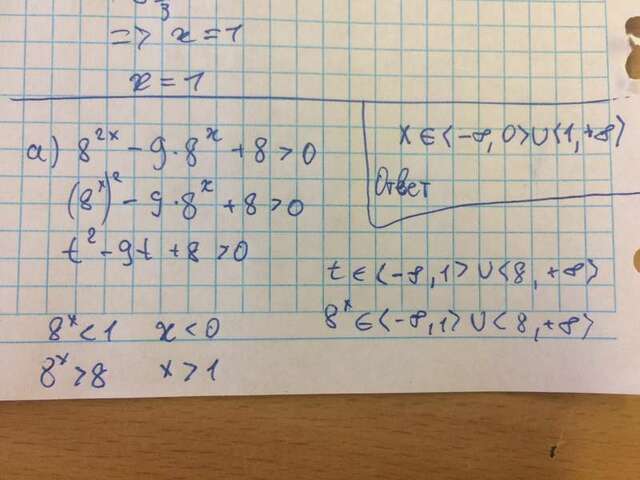 => x = 1
x = 1
а) 8^{2x} - 9·8^x + 8 > 0
(8^x)^2 - 9·8^x + 8 > 0
t^2 - 9t + 8 > 0
t ∈ (-∞, 1) ∪ (8, +∞)
8^x ∈ (-∞, 1) ∪ (8, +∞)
8^x < 1 x < 0
8^x > 8 x > 1
x ∈ (-∞, 0) ∪ (1, +∞)
Ответ